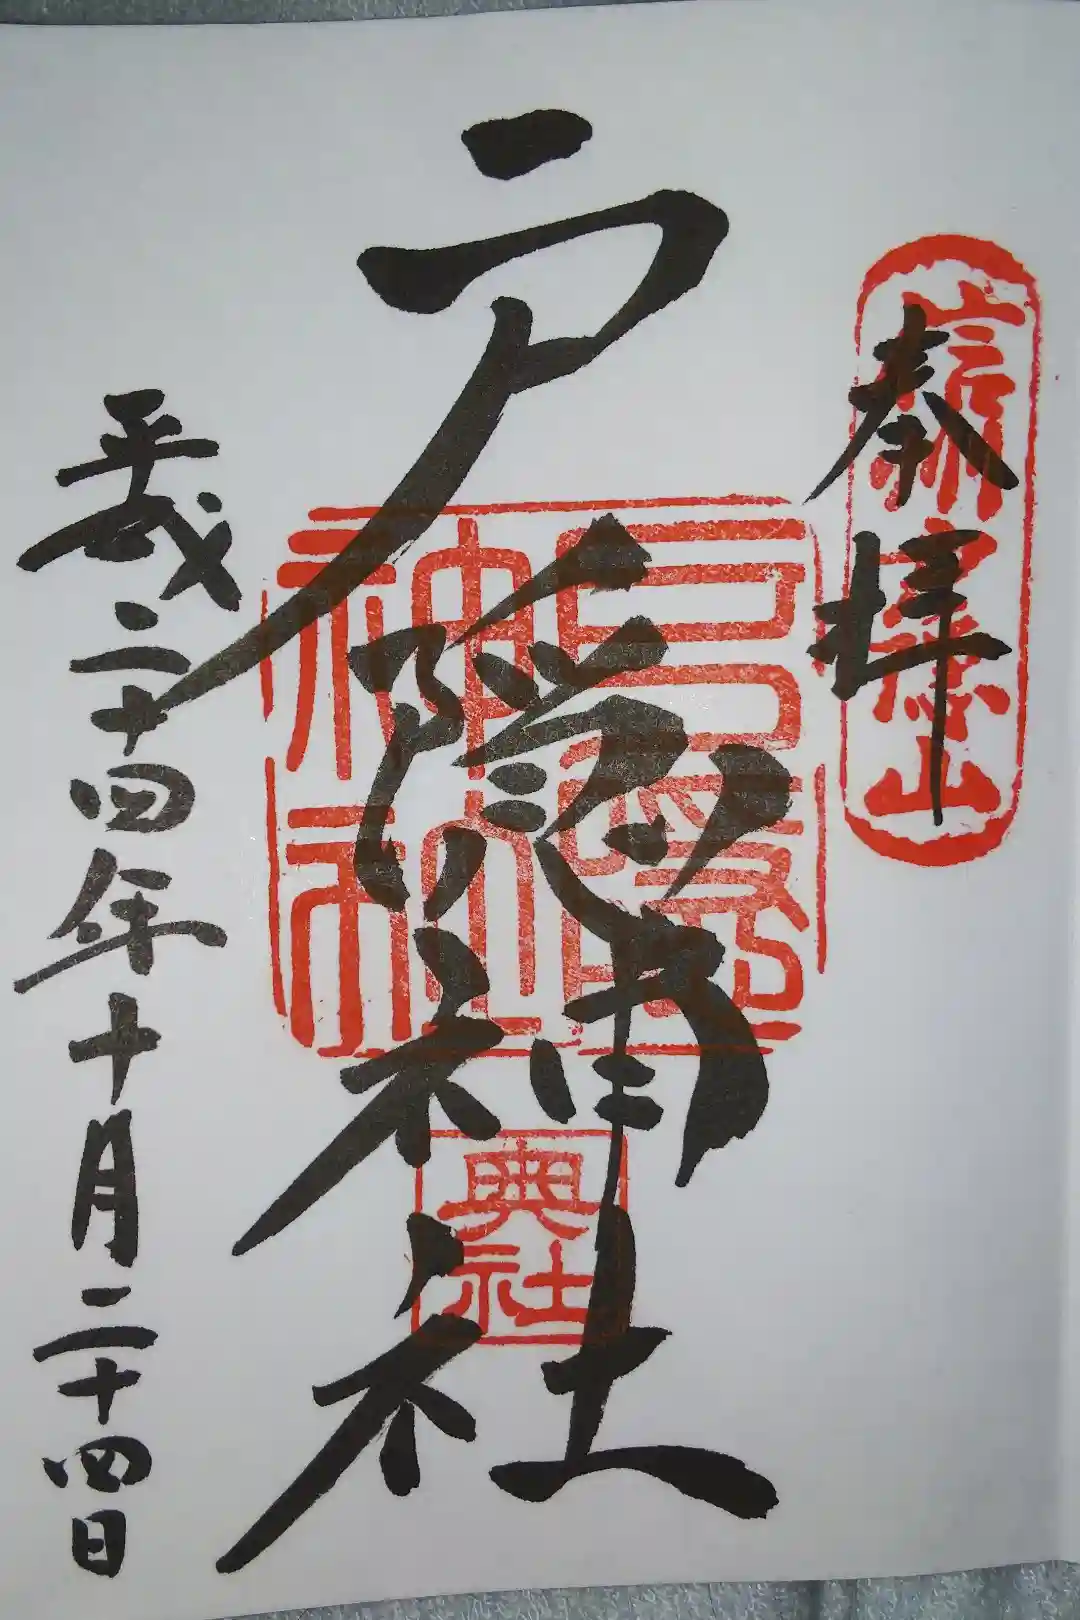 奉拝
信州戸隠山
戸隠神社
戸隠神社
奥社
平成二十四年十月二十四日